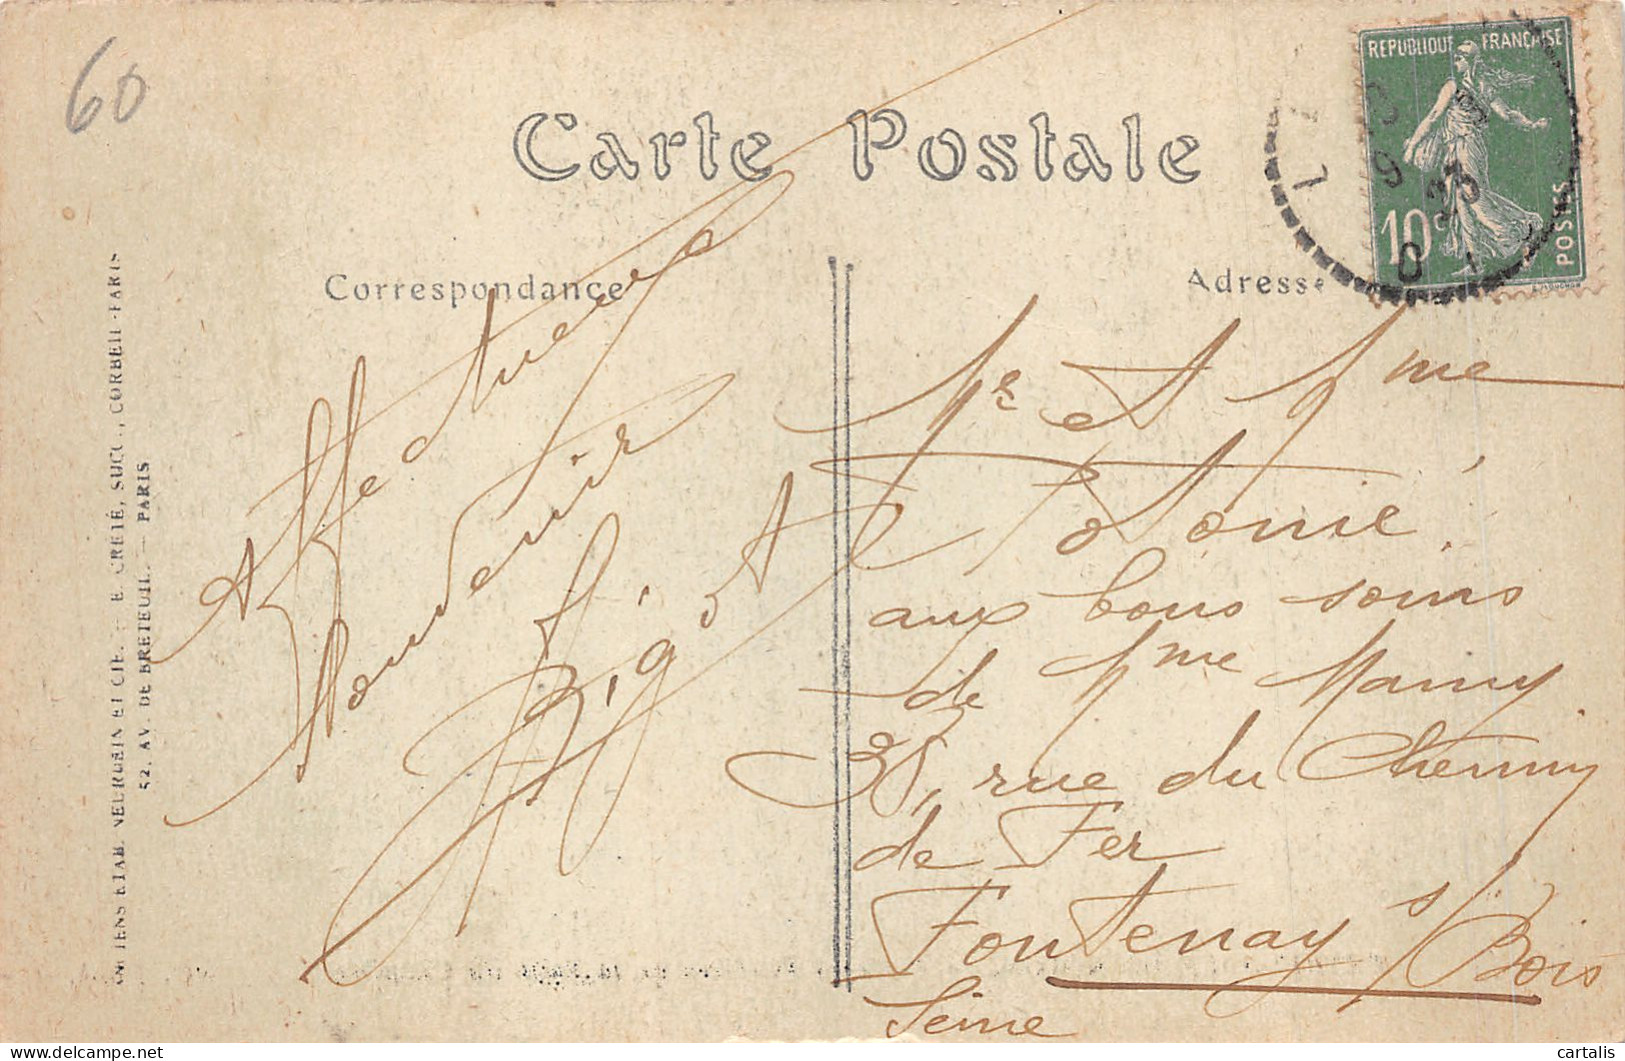 60
Carte Postale
REPUBLIQUE FRANÇAISE
10c
POSTES
Correspondance
Adresse
ANCIENS ETAB. NEURDEIN ET CIE. — E. CRÉTÉ, SUCC., CORBEIL-PARIS
52, AV. DE BRETEUIL. — PARIS
Affectueux
Souvenir
Mr et Mme
aux bons soins
de Mme Mamy
35, rue du Chemin
de Fer
Fontenay s/ Bois
Seine
cartalis